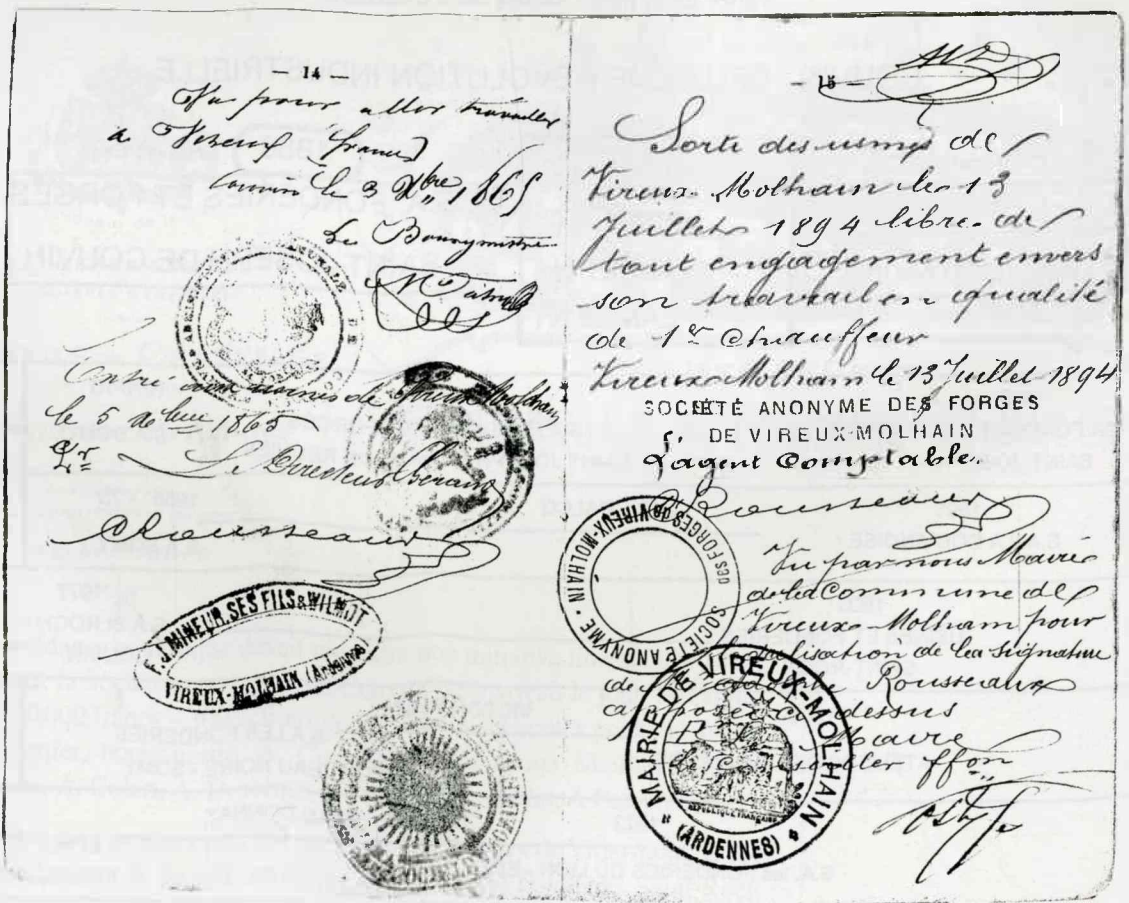 14 —
Vu pour aller travailler
à Vireux France
Couvin le 3 Xbre 1865
Le Bourgmestre
Entré aux usines de Vireux Molhain
le 5 Xbre 1865
Pr Le Directeur Gérant
ARousseaux
F. J. MINEUR, SES FILS & WILMOT
VIREUX-MOLHAIN (Ardennes)
15 —
Sorti des usines de
Vireux-Molhain le 13
Juillet 1894 libre de
tout engagement envers
son travail en qualité
de 1er Chauffeur
Vireux-Molhain le 13 Juillet 1894
SOCIÉTÉ ANONYME DES FORGES
DE VIREUX-MOLHAIN
L'agent Comptable.
Rousseaux
SOCIÉTÉ ANONYME - DES FORGES DE VIREUX-MOLHAIN
Vu par nous Maire
de la Commune de
Vireux-Molhain pour
légalisation de la signature
de Rousseaux
apposée ci dessus
Maire
MAIRIE DE VIREUX-MOLHAIN
RÉPUBLIQUE FRANÇAISE
(ARDENNES)